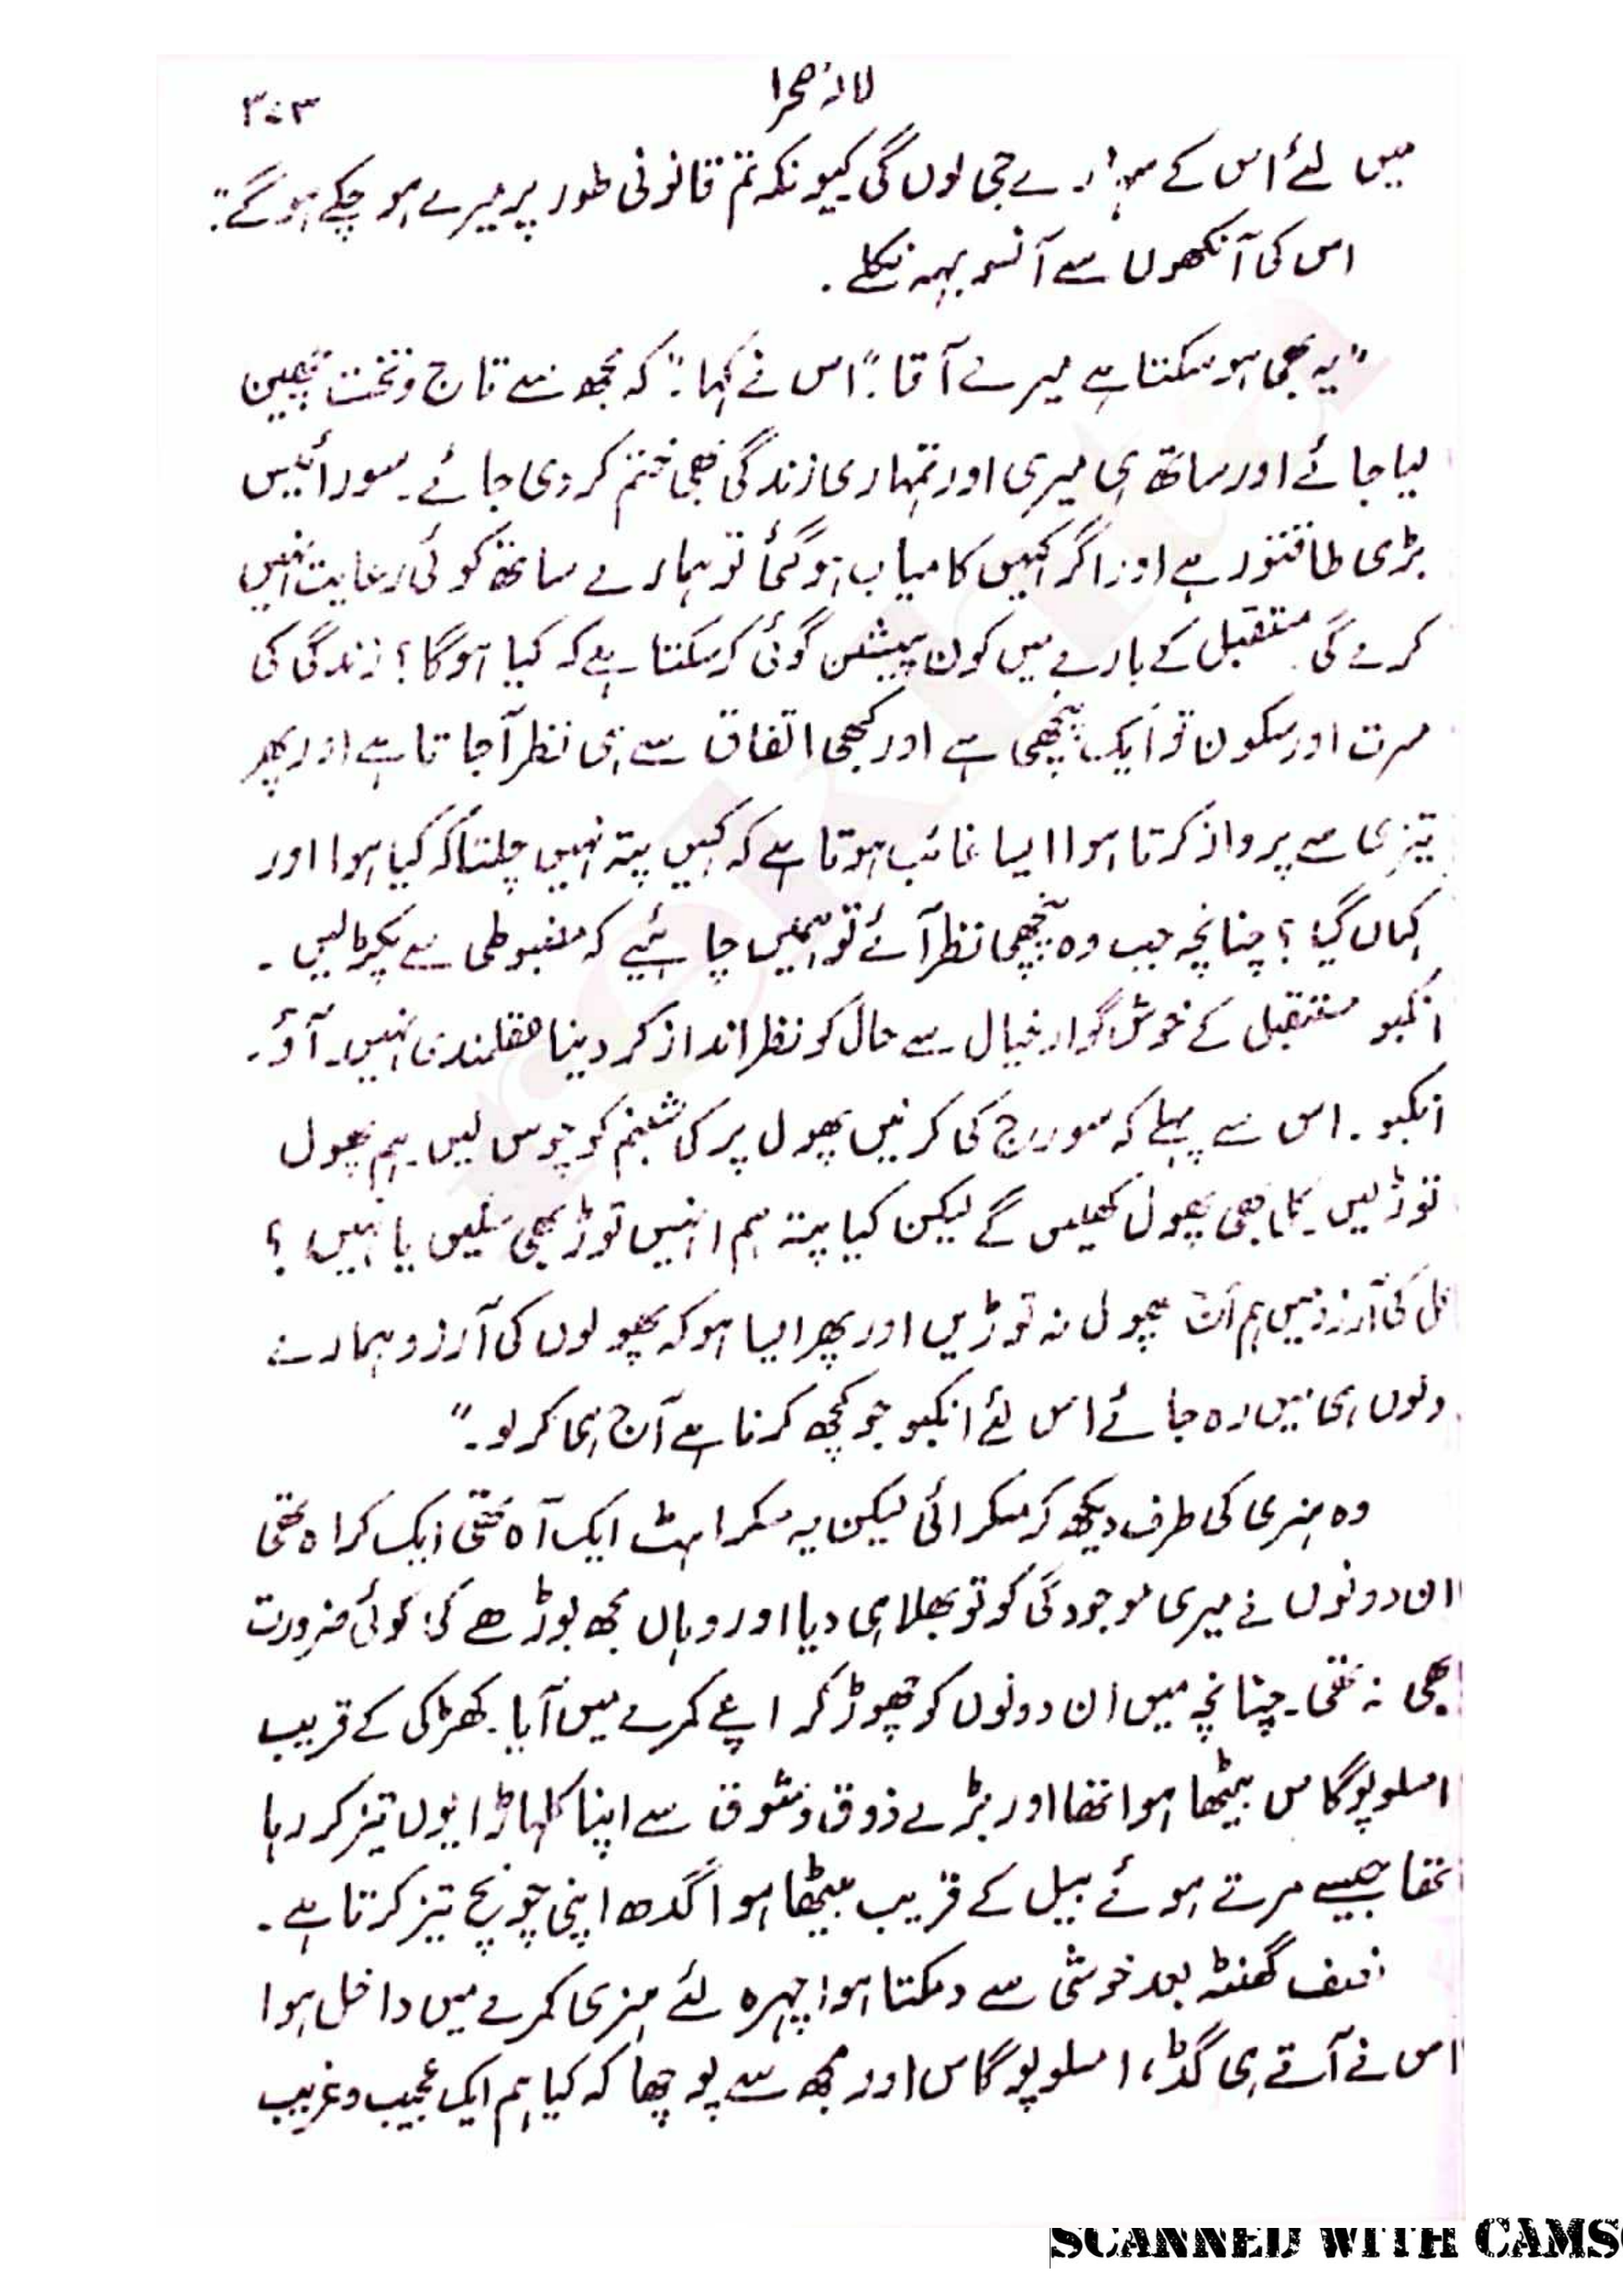 لالہ صحرا
۳۰۳
میں لئے اس کے سہارے جی لوں گی کیونکہ تم قانونی طور پر میرے ہو چکے ہوگے:
اس کی آنکھوں سے آنسو بہہ نکلے۔
"یہ بھی ہو سکتا ہے میرے آقا:" اس نے کہا:" کہ مجھ سے تاج و تخت چھین
لیا جائے اور ساتھ ہی میری اور تمہاری زندگی بھی ختم کر دی جائے۔ سورائیس
بڑی طاقتور ہے اور اگر کہیں کامیاب ہو گئی تو ہمارے ساتھ کوئی رعایت نہیں
کرے گی۔ مستقبل کے بارے میں کون پیشن گوئی کر سکتا ہے کہ کیا ہوگا؟ زندگی کی
مسرت اور سکون تو ایک پنچھی ہے اور کبھی اتفاق سے ہی نظر آجاتا ہے اور پھر
تیزی سے پرواز کرتا ہوا ایسا غائب ہوتا ہے کہ کہیں پتہ نہیں چلتا کہ کیا ہوا اور
کہاں گیا؟ چنانچہ جب وہ پنچھی نظر آئے تو ہمیں چاہئیے کہ مضبوطی سے پکڑ لیں۔
انکبو مستقبل کے خوش گوار خیال سے حال کو نظر انداز کر دینا عقلمندی نہیں۔ آؤ۔
انکبو۔ اس سے پہلے کہ سورج کی کرنیں پھول پر کی شبنم کو چوس لیں۔ ہم پھول
توڑ لیں۔ کل بھی پھول کھلیں گے لیکن کیا پتہ ہم انہیں توڑ بھی سکیں یا نہیں؟
کل کی آرزو میں ہم آج پھول نہ توڑیں اور پھر ایسا ہو کہ پھولوں کی آرزو ہمارے
دلوں ہی میں رہ جائے اس لئے انکبو جو کچھ کرنا ہے آج ہی کر لو۔"
وہ ہنری کی طرف دیکھ کر مسکرائی لیکن یہ مسکراہٹ ایک آہ تھی ایک کراہ تھی
ان دونوں نے میری موجودگی کو تو بھلا ہی دیا اور وہاں مجھ بوڑھے کی کوئی ضرورت
بھی نہ تھی۔ چنانچہ میں ان دونوں کو چھوڑ کر اپنے کمرے میں آیا۔ کھڑکی کے قریب
امسلوپوگاس بیٹھا ہوا تھا اور بڑے ذوق و شوق سے اپنا کلہاڑا یوں تیز کر رہا
تھا جیسے مرتے ہوئے بیل کے قریب بیٹھا ہوا گدھ اپنی چونچ تیز کرتا ہے۔
نصف گھنٹہ بعد خوشی سے دمکتا ہوا چہرہ لئے ہنری کمرے میں داخل ہوا
اس نے آتے ہی گڈ، امسلوپوگاس اور مجھ سے پوچھا کہ کیا ہم ایک عجیب و غریب
SCANNED WITH CAMS